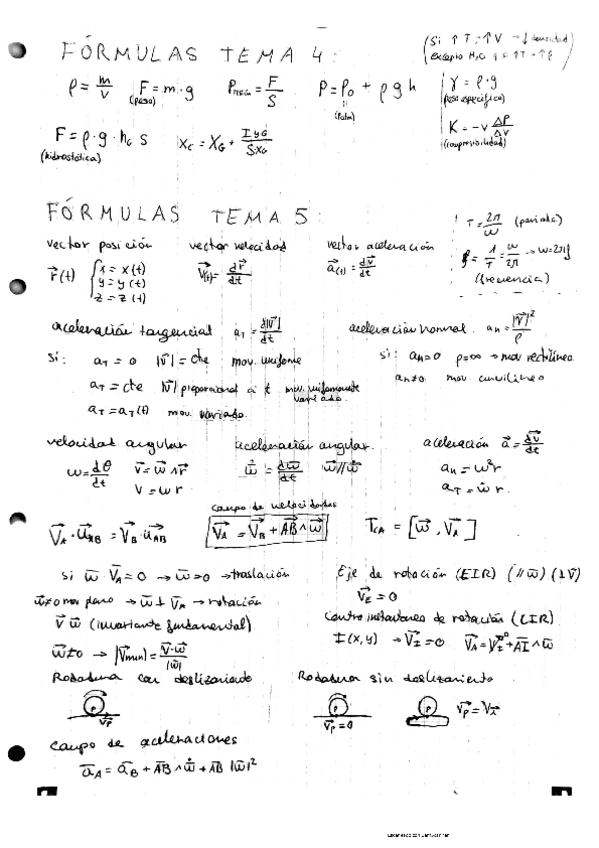 FÓRMULAS TEMA 4:
(Si ↑T → ↑V → ↓ densidad
ρ = m/V F = m·g (peso) Presión = F/S P = P₀ + ρ g h (Patm) γ = ρ·g (peso específico)
F = ρ·g·h_G S (hidrostática) X_C = X_G + I_yG/S·X_G K = -V ΔP/ΔV (compresibilidad)
FÓRMULAS TEMA 5:
T = 2π/ω (periodo)
f = 1/T = ω/2π → ω = 2πf (frecuencia)
vector posición vector velocidad vector aceleración
r⃗(t) { x = x(t) y = y(t) z = z(t) v⃗(t) = dr⃗/dt a⃗(t) = dv⃗/dt
aceleración tangencial a_T = d|v⃗|/dt aceleración normal. a_n = |v⃗|²/ρ
Si: a_T = 0 |v⃗| = cte mov. uniforme si: a_n = 0 ρ = ∞ → mov rectilíneo
a_T = cte |v⃗| proporcional a t mov. uniformemente variado. a_n ≠ 0 mov curvilíneo
a_T = a_T(t) mov. variado.
velocidad angular aceleración angular. aceleración a⃗ = dv⃗/dt
ω = dθ/dt v⃗ = ω⃗ ∧ r⃗ ω̇⃗ = dω⃗/dt ω⃗ // ω̇⃗ a_n = ω²r
v = ω r a_T = ω̇ r.
campo de velocidades
V⃗_A · u⃗_AB = V⃗_B · u⃗_AB V⃗_A = V⃗_B + AB⃗ ∧ ω⃗ T_CA = [ω⃗, V⃗_A]
si ω⃗ · V⃗_A = 0 → ω⃗ = 0 → traslación Eje de rotación (EIR) (// ω⃗) (⊥ v⃗)
ω⃗ ≠ 0 mov plano → ω⃗ ⊥ V⃗_A → rotación V⃗_E = 0
V⃗ ω⃗ (invariante fundamental) Centro instantáneo de rotación (CIR)
ω⃗ ≠ 0 → |V⃗min| = V⃗·ω⃗/|ω⃗| I(x, y) → V⃗_I = 0 V⃗_A = V⃗_I⁰ + AI⃗ ∧ ω⃗
Rodadura con deslizamiento Rodadura sin deslizamiento
P V⃗_P P V⃗_P = 0 P
campo de aceleraciones
a⃗_A = a⃗_B + AB⃗ ∧ ω̇⃗ + AB⃗ |ω⃗|²